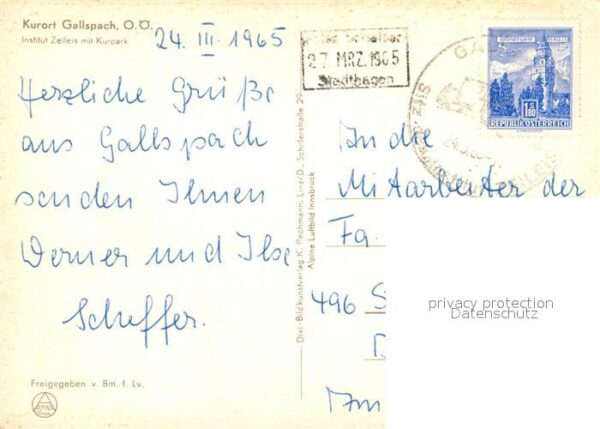 Kurort Gallspach, O.Ö.
Institut Zeileis mit Kurpark
24. III. 1965
Herzliche Grüße
aus Gallspach
senden Ihnen
Werner und Ilse
Scheffer.
Freigegeben v. Bm. f. Lv.
Dixi-Bildkunstverlag K. Pechmann, Linz/D., Schillerstraße 29
Alpine Luftbild Innsbruck
27. MRZ. 1965
Stadthagen
1.80
REPUBLIK ÖSTERREICH
An die
Mitarbeiter der
Fa.
496 S
privacy protection
Datenschutz